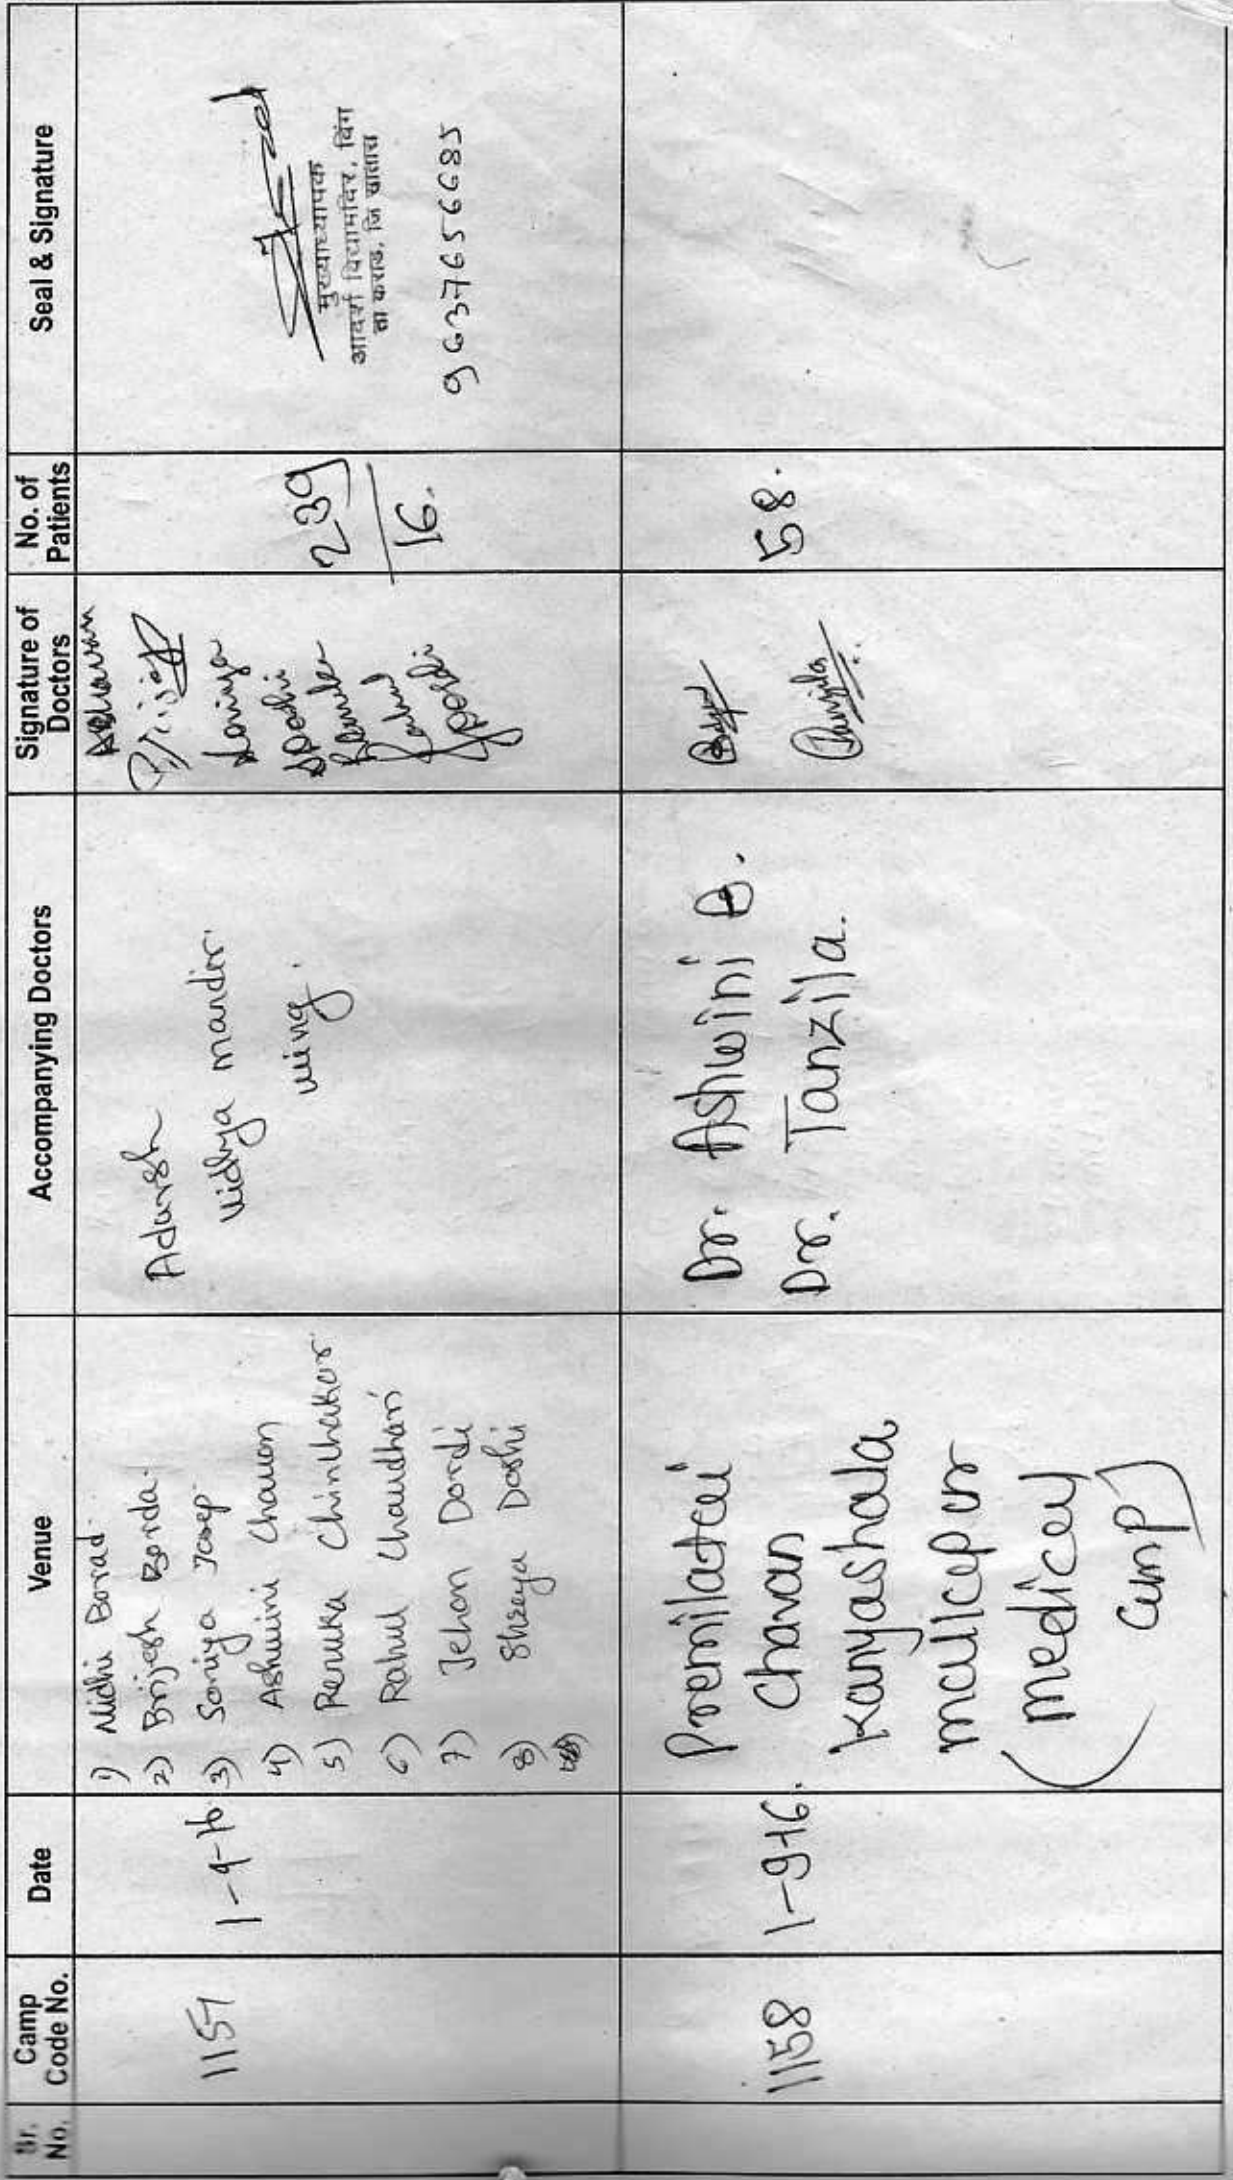 Sr. No.
Camp Code No.
Date
Venue
Accompanying Doctors
Signature of Doctors
No. of Patients
Seal & Signature
1157
1-9-16
1) Nidhi Borad
2) Brijesh Borda
3) Soniya
4) Ashwini Chavan
5) Renuka Chinchakar
6) Rahul Chaudhari
7) Jehan Dordi
8) Shreya Doshi
Adarsh
Vidhya mandir
wing.
AChavan
Soniya
Renuka
239
16.
मुख्याध्यापक
आदर्श विद्यामंदिर, विंग
ता कराड, जि सातारा
9637656685
1158
1-9-16.
Premilatai
Chavan
Kanyashala
malkapur
(medical
camp)
Dr. Ashwini B.
Dr. Tanzila.
Tanzila
58.